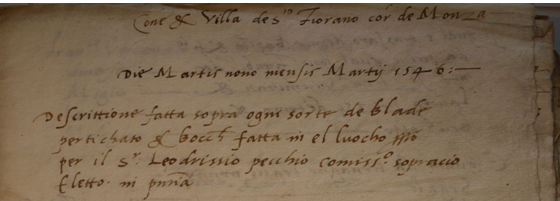 Cone & Villa de sto Fiorano cor de Monza
Die Martis nono mensis Martij 1546:
Descrittione fatta sopra ogne sorte de blade
pertichato & bocch fatta in el luocho
per il Sr. Leodrissio pecchio comisso sopracio
Eletto in